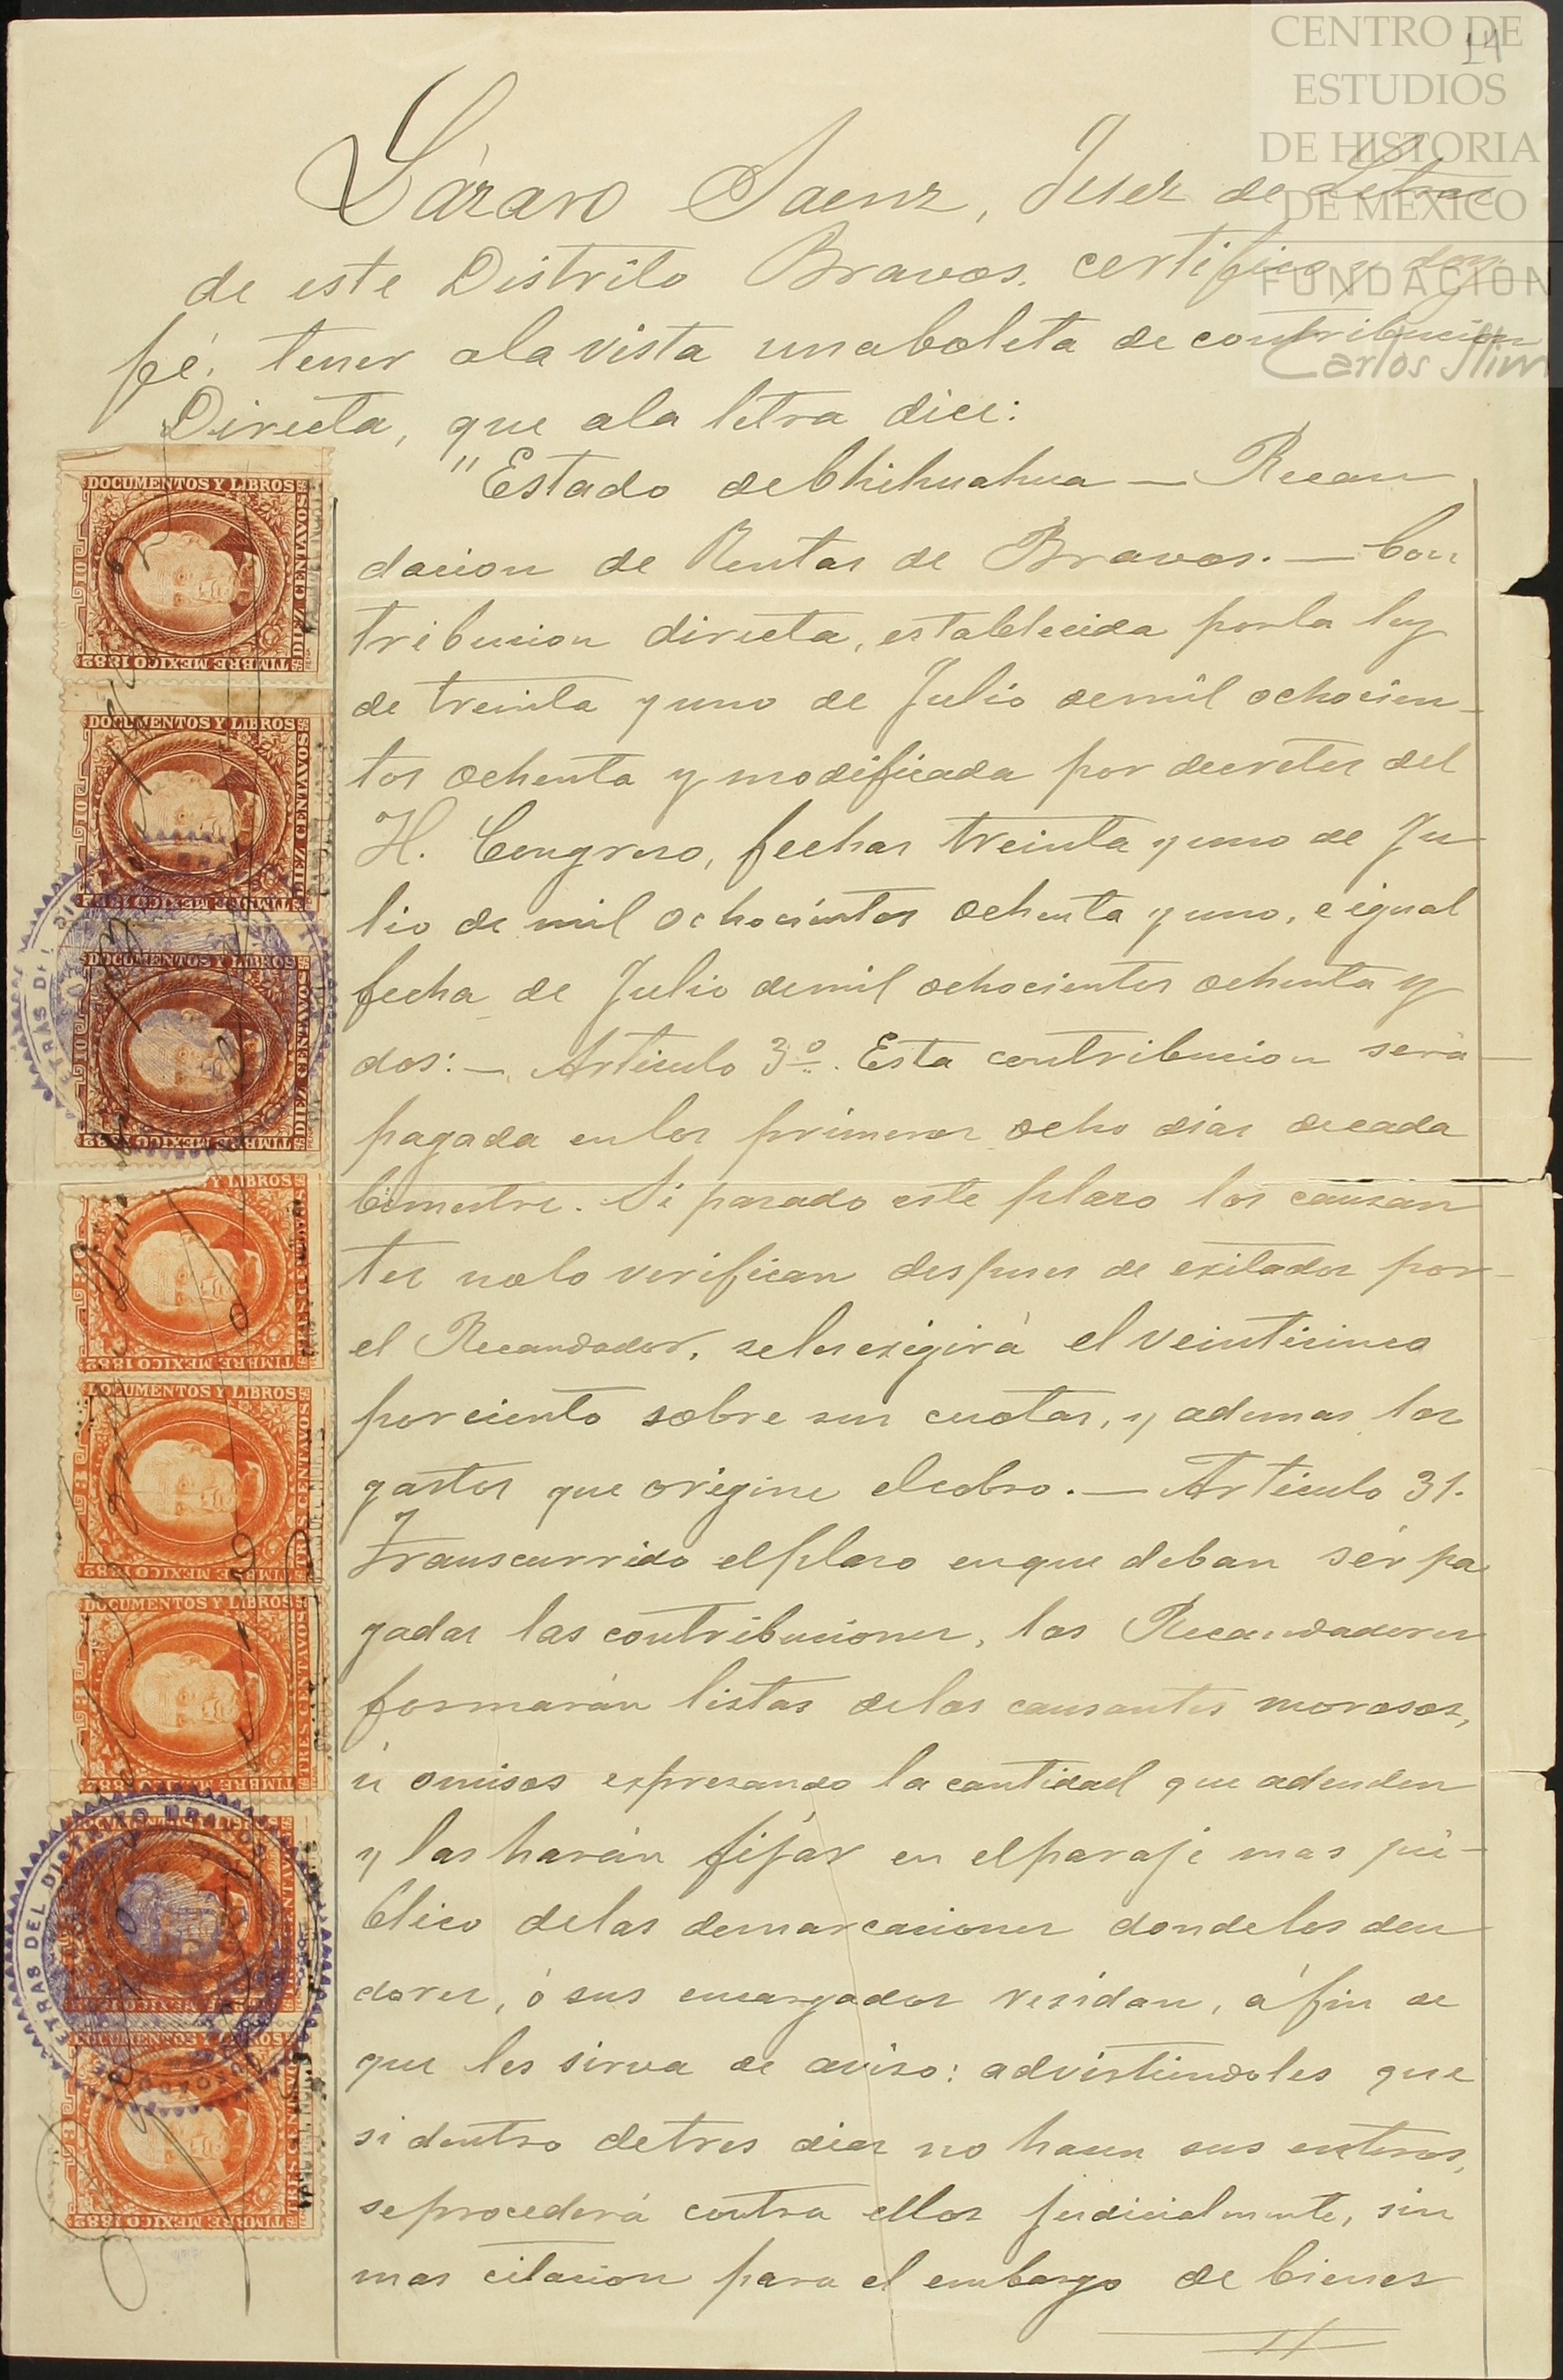 CENTRO DE
ESTUDIOS
DE HISTORIA
DE MÉXICO
FUNDACION
Carlos Slim
14
Lázaro Saenz, Juez de Letras
de este Distrito Bravos, certifico y doy
fé, tener ala vista una boleta de contribucion
Directa, que ala letra dice:
"Estado de Chihuahua — Recau
dacion de Rentas de Bravos. — Con
tribucion directa, establecida por la ley
de treinta y uno de Julio de mil ochocien-
tos ochenta y modificada por decretos del
H. Congreso, fechas treinta y uno de Ju
lio de mil ochocientos ochenta y uno, e igual
fecha de Julio de mil ochocientos ochenta y
dos: — Articulo 3º. Esta contribucion será
pagada en los primeros ocho dias de cada
bimestre. Si pasado este plazo los causan
tes nolo verifican despues de exitados por
el Recaudador, se les exigirá el veinticinco
por ciento sobre sus cuotas, y ademas los
gastos que origine el cobro. — Articulo 31.
Transcurrido el plazo en que deban sér pa
gadas las contribuciones, los Recaudadores
formarán listas de los causantes morosos,
ú omisos espresando la cantidad que adeuden
y las harán fijar en el paraje mas pú-
blico de las demarcaciones donde los deu
dores, ó sus encargados residan, á fin de
que les sirva de aviso: advirtiendoles que
si dentro de tres dias no hacen sus enteros,
se procederá contra ellos judicialmente, sin
mas citacion para el embargo de bienes
DOCUMENTOS Y LIBROS
DIEZ CENTAVOS
TIMBRE MEXICO 1882
10
DOCUMENTOS Y LIBROS
DIEZ CENTAVOS
TIMBRE MEXICO 1882
10
DOCUMENTOS Y LIBROS
DIEZ CENTAVOS
TIMBRE MEXICO 1882
10
Y LIBROS
TRES CENTAVOS
TIMBRE MEXICO 1882
3
DOCUMENTOS Y LIBROS
TRES CENTAVOS
TIMBRE MEXICO 1882
3
DOCUMENTOS Y LIBROS
TRES CENTAVOS
TIMBRE MEXICO 1882
3
DOCUMENTOS Y LIBROS
DOCUMENTOS Y LIBROS
TRES CENTAVOS
TIMBRE MEXICO 1882
3
LETRAS DEL DISTRITO BRAVOS